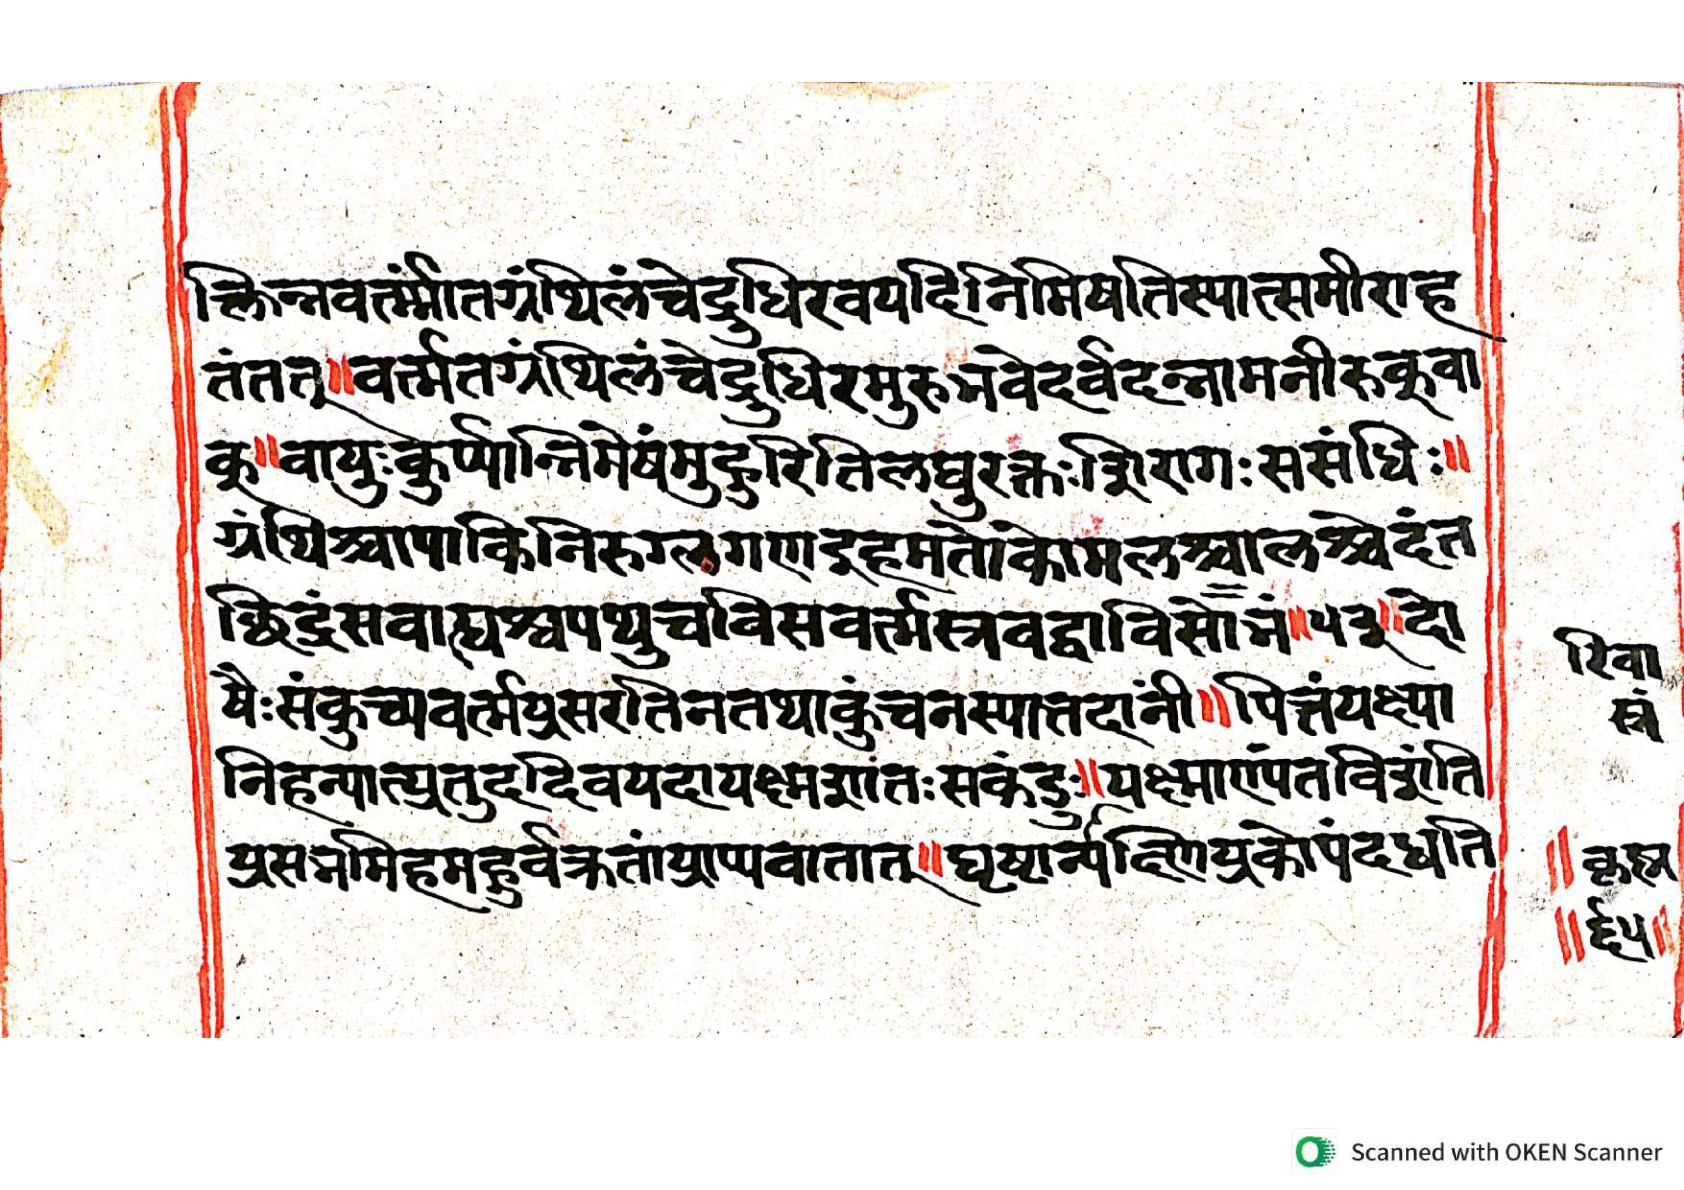 क्लिन्नवर्त्मांतग्रंथिलंचेद्रुधिरवयदिनिमिषतिस्पात्समीराह
तंतत्॥वर्त्मतग्रंथिलंचेद्रुधिरमुरुभवेदर्वदन्नामनीरुक्वा
क्॥वायुःकुर्प्पान्निमेषंमुद्गुरितिलघुरक्तःशिरागःससंधिः॥
ग्रंथिश्चापाकिनिरुग्लगणइहमतोकोमलश्चालश्चेदंत
श्छिद्रंसवाह्यश्चपथुचविसवर्त्मस्त्रवद्वाविसोभं॥५३॥दो
षैःसंकुच्यवर्त्मप्रसरतिनतथाकुंचनस्पात्तदांनीं॥पित्तंयक्ष्पा
निहन्यात्प्रतुददिवयदायक्ष्मशांतःसकंडुः॥यक्ष्माणंपतविशंति
प्रसभमिहमहुर्वक्रतांप्राप्यवातात्॥घृष्टान्यक्ष्णिप्रकोपंदधति
रिवा
स्त्रं
॥कृह्म
॥र्द्दप॥
Scanned with OKEN Scanner